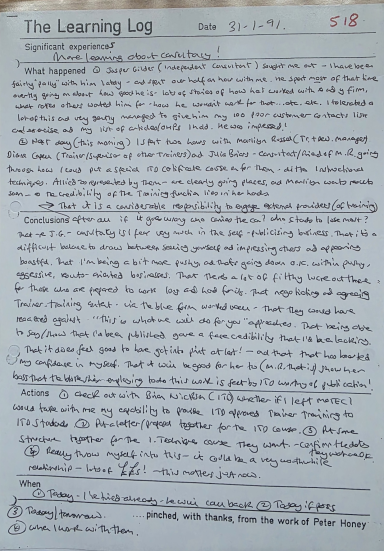 The Learning Log Date 31-1-91. 518
Significant experiences
More learning about consultancy!
What happened ① Jasper Gilder (independent consultant) sought me out - I have been
fairly 'pally' with him lately - and spent our half an hour with me. He spent most of that time
overtly going on about how good he is - lots of stories of how he's worked with and y firm,
what roles others wanted him for - how he won't work for that... etc. etc. I tolerated a
lot of this and very gently managed to give him my 100 poor customer contacts list
and exercise and my list of articles/OHPs I had. He was impressed!
② Next day (this morning) I spent two hours with Marilyn (Tr + dev. manager)
Diana Capen (Trainer/supervisor of other trainers) and Julie Briers - consultant/Head of M.R. going
through how I could put a special ITD certificate course on for them - ditto instructional
techniques. All led to repeated by them - are clearly going places, and Marilyn wants results
soon - The credibility of the Training function lies in her hands
→ That it is a considerable responsibility to engage external providers (of training)
Conclusions after all if it goes wrong who carries the can? who stands to lose most?
That - A J.G. - consultancy is/ever very much in the self-publicising business, That it's a
difficult balance to draw between selling yourself and impressing others and appearing
boastful. That I'm being a bit more pushy and that's going down o.k. within pushy,
aggressive, results-oriented businesses. That there's a lot of filthy lucre out there
for those who are prepared to work long and hard for it. That negotiating and agreeing
Trainer-training content - via the firm worked been - That they would have
reacted against "This is what we will do for you" approaches. That being able
to say/show that I'd been published gave a free credibility that I'd be lacking
That it does feel good to have got into print at lot! - and that that has boosted
my confidence in myself. That it will be good for her to (M.R. that is) show her
boss that the bloke she's employing to do this work is seen by ITD worthy of publication!
Actions ① Check out with Brian Nicklen (ITD) whether if I left MOTEC I
would take with me my capability to provide ITD approved Trainer Training to
ITD standards ② Put a letter/proposal together for the ITD course. ③ Put some
structure together for the I. Technique course they want. - confirm the dates
④ Really throw myself into this - it could be a very worthwhile
relationship - lots of £££s! - this matters just now.
When
① Today - I've tried already - he will call back ② Today if poss
③ Today/tomorrow. ....pinched, with thanks, from the work of Peter Honey
④ when I work with them.